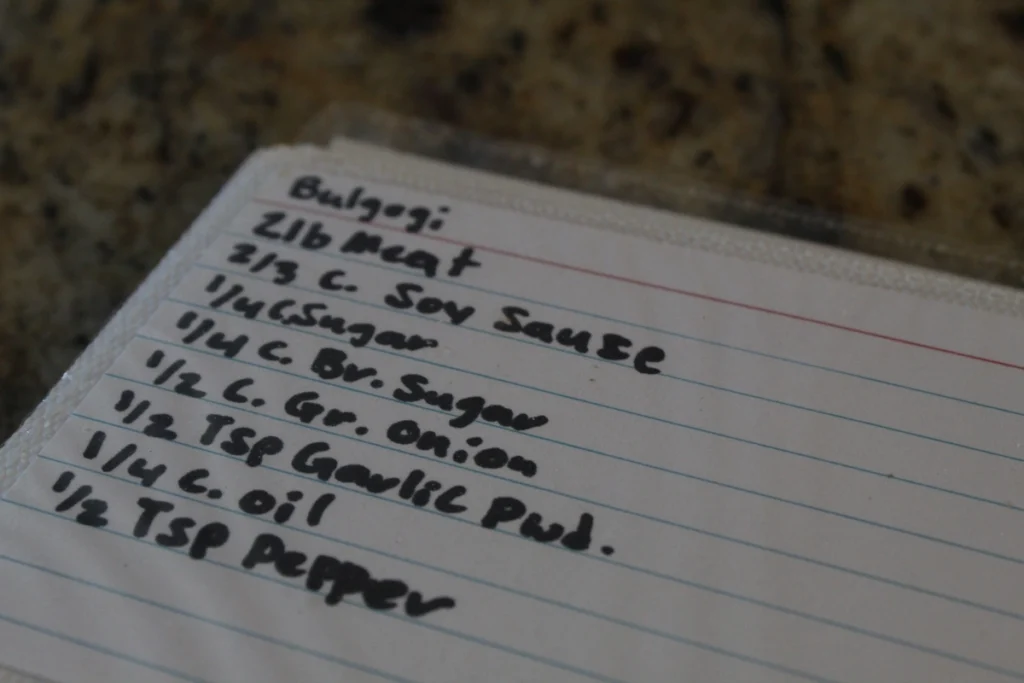 Bulgogi
2lb Meat
2/3 C. Soy Sause
1/4 C Sugar
1/4 C. Br. Sugar
1/2 C. Gr. Onion
1/2 Tsp Garlic Pwd.
1/4 C. Oil
1/2 Tsp Pepper